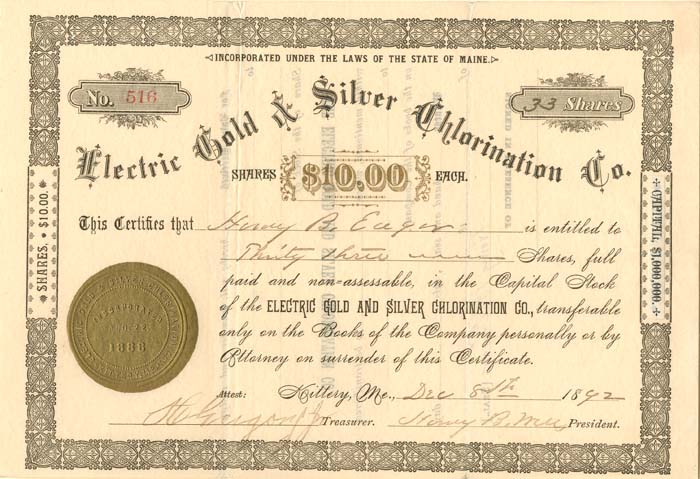 INCORPORATED UNDER THE LAWS OF THE STATE OF MAINE.
No. 516
33 Shares
Electric Gold & Silver Chlorination Co.
SHARES $10.00 EACH.
This Certifies that Henry B. is entitled to
Thirty three Shares, full
paid and non-assessable, in the Capital Stock
of the ELECTRIC GOLD AND SILVER CHLORINATION CO., transferable
only on the Books of the Company personally or by
Attorney on surrender of this Certificate.
Attest: Kittery, Me., Dec 8th 1892
Treasurer. Henry B. President.
SHARES. $10.00.
CAPITAL, $1,000,000.
INCORPORATED
1888